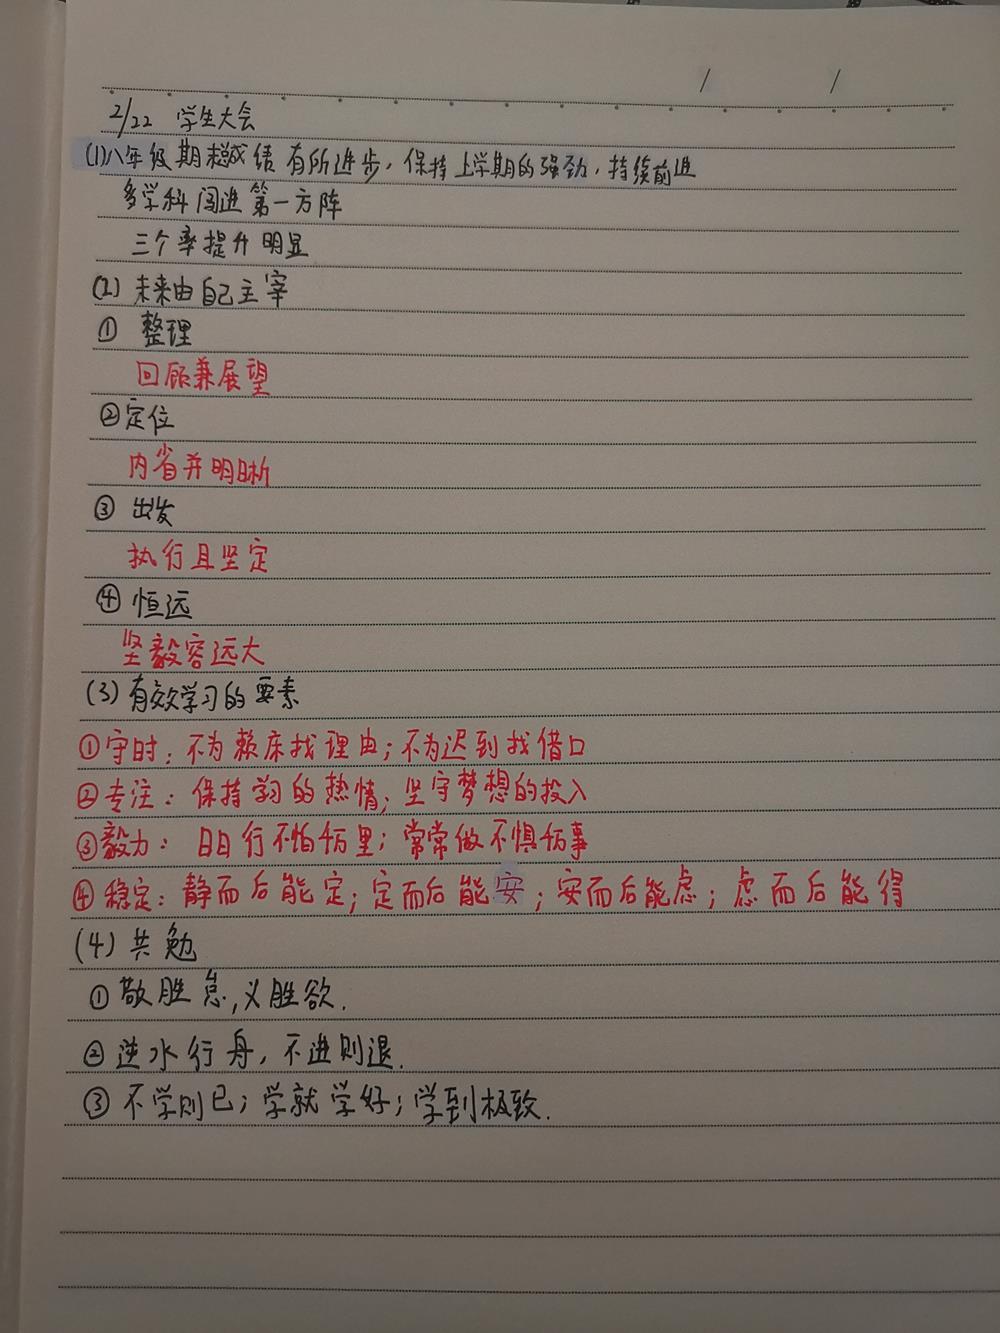 2/22 学生大会
(1)八年级期末成绩有所进步，保持上学期的强劲，持续前进
多学科闯进第一方阵
三个率提升明显
(2) 未来由自己主宰
① 整理
回顾兼展望
②定位
内省并明晰
③ 出发
执行且坚定
④ 恒远
坚毅容远大
(3)有效学习的要素
①守时：不为赖床找理由；不为迟到找借口
②专注：保持学习的热情；坚守梦想的投入
③毅力：日日行不怕千万里；常常做不惧千万事
④稳定：静而后能定；定而后能安；安而后能虑；虑而后能得
(4)共勉
①敬胜怠，义胜欲.
②逆水行舟，不进则退.
③不学则已；学就学好；学到极致.